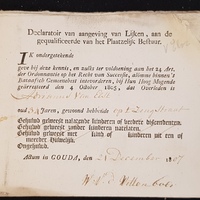 Declaratoir van aangeving van Lijken, aan de
gequalificeerde van het Plaatzelijk Bestuur.
IK ondergetekende
geve bij deze kennis, en zulks ter voldoening aan het 24 Art.
der Ordonnantie op het Recht van Successie, alsmede binnen 't
Bataafsch Gemeenebest ingevoerd, bij Hun Hoog Mogende
gearresteerd den 4 October 1805, dat Overleden is
oud 34 Jaren, gewoond hebbende op
Gehuwd geweest nalatende kinderen of verdere discendenten.
Gehuwd geweest zonder kinderen natelaten.
Gehuwd geweest met kind of kinderen uit een of
meerder Huwelijk.
Ongehuwd.
Actum in GOUDA, den 28 December 1807